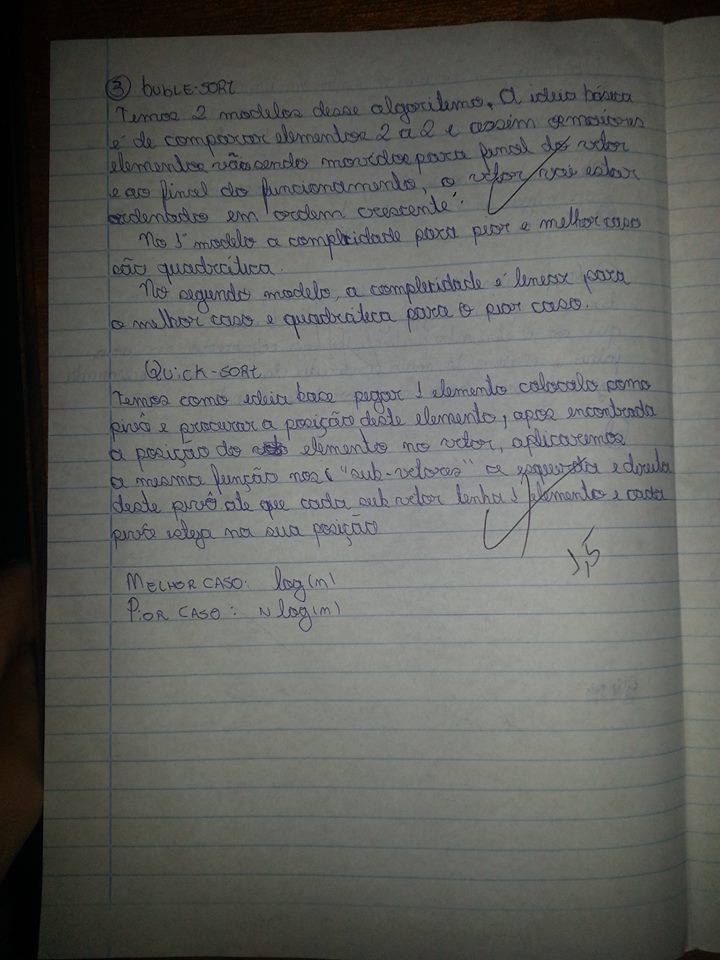 3 BUBLE-SORT
Temos 2 modelos desse algoritemo. A ideia básica
é de comparar elementos 2 a 2 e assim os maiores
elementos vão sendo movidos para final do vetor
e ao final do funcionamento, o vetor vai estar
ordenado em ordem crescente.
No 1º modelo a complexidade para pior e melhor caso
são quadrática.
No segundo modelo, a complexidade é linear para
o melhor caso e quadrática para o pior caso.
QUICK-SORT
Temos como ideia base pegar 1 elemento colocalo como
pivô e procurar a posição deste elemento, apos encontrada
a posição do elemento no vetor, aplicaremos
a mesma função nos "sub-vetores" a esquerda e direita
deste pivô ate que cada sub vetor tenha 1 elemento e cada
pivô esteja na sua posição
1,5
MELHOR CASO: log(n)
PIOR CASO: N log(n)